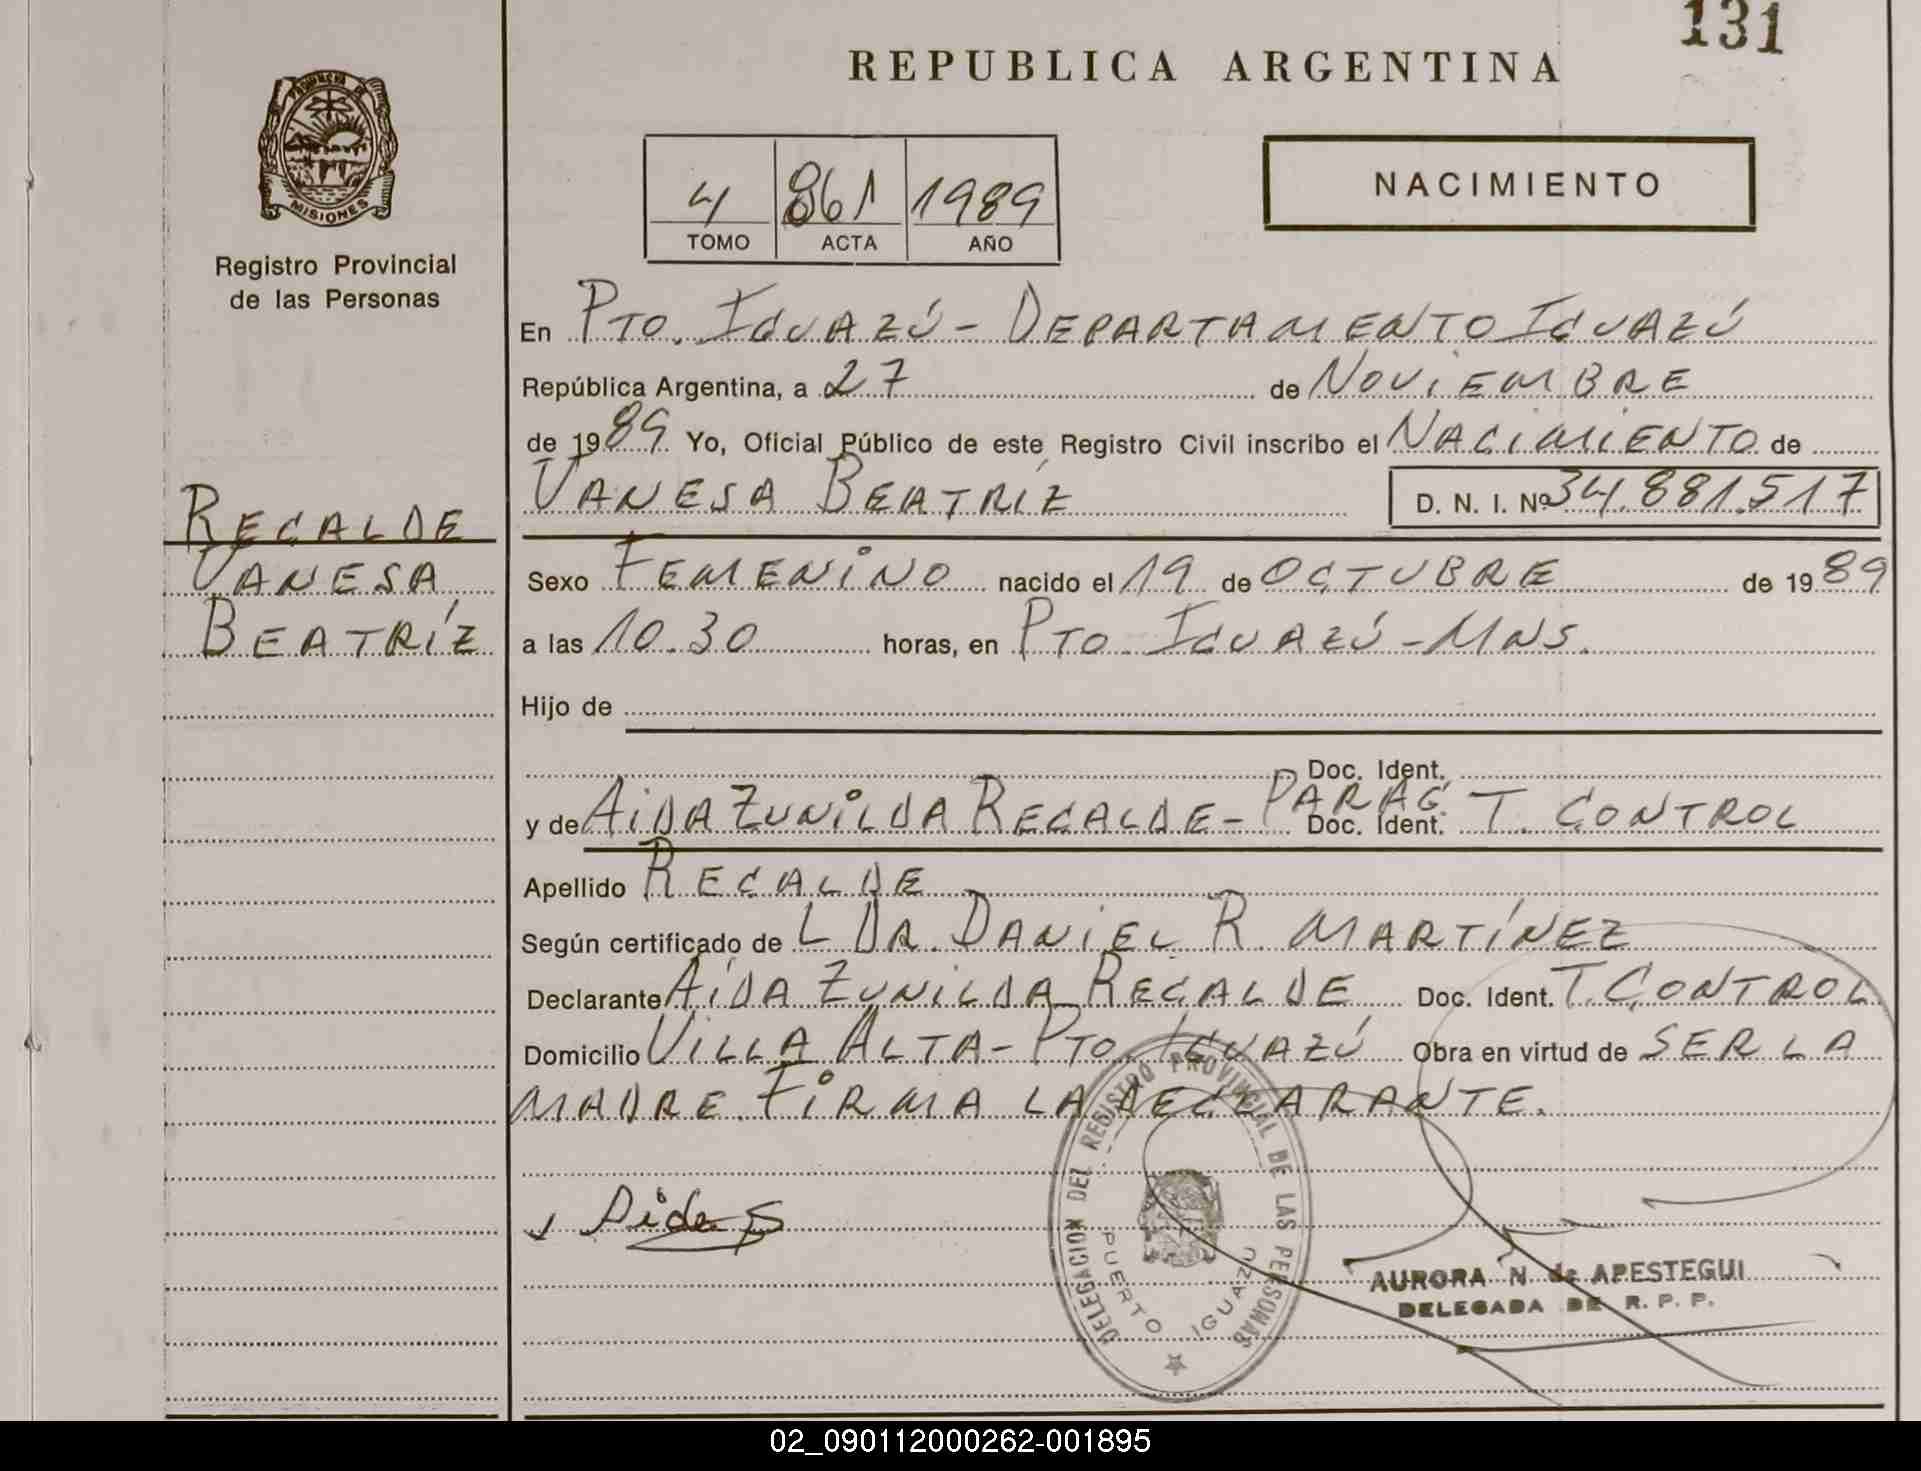 131
REPUBLICA ARGENTINA
PROVINCIA DE
MISIONES
Registro Provincial
de las Personas
4 861 1989
TOMO ACTA AÑO
NACIMIENTO
En PTO. IGUAZÚ - DEPARTAMENTO IGUAZÚ
República Argentina, a 27 de NOVIEMBRE
de 1989 Yo, Oficial Público de este Registro Civil inscribo el NACIMIENTO de
VANESA BEATRÍZ D. N. I. Nº 34.881.517
RECALDE
VANESA
BEATRÍZ
Sexo FEMENINO nacido el 19 de OCTUBRE de 1989
a las 10.30 horas, en PTO. IGUAZÚ - MNS.
Hijo de
Doc. Ident.
y de AIDA ZUNILDA RECALDE - PARAG. Doc. Ident. T. CONTROL
Apellido RECALDE
Según certificado de L DR. DANIEL R. MARTÍNEZ
Declarante AIDA ZUNILDA RECALDE Doc. Ident. T. CONTROL
Domicilio VILLA ALTA - PTO. IGUAZÚ Obra en virtud de SER LA
MADRE. FIRMA LA DECLARANTE.
DELEGACION DEL REGISTRO PROVINCIAL DE LAS PERSONAS
PUERTO IGUAZU
AURORA N de APESTEGUI
DELEGADA DE R. P. P.
02_090112000262-001895